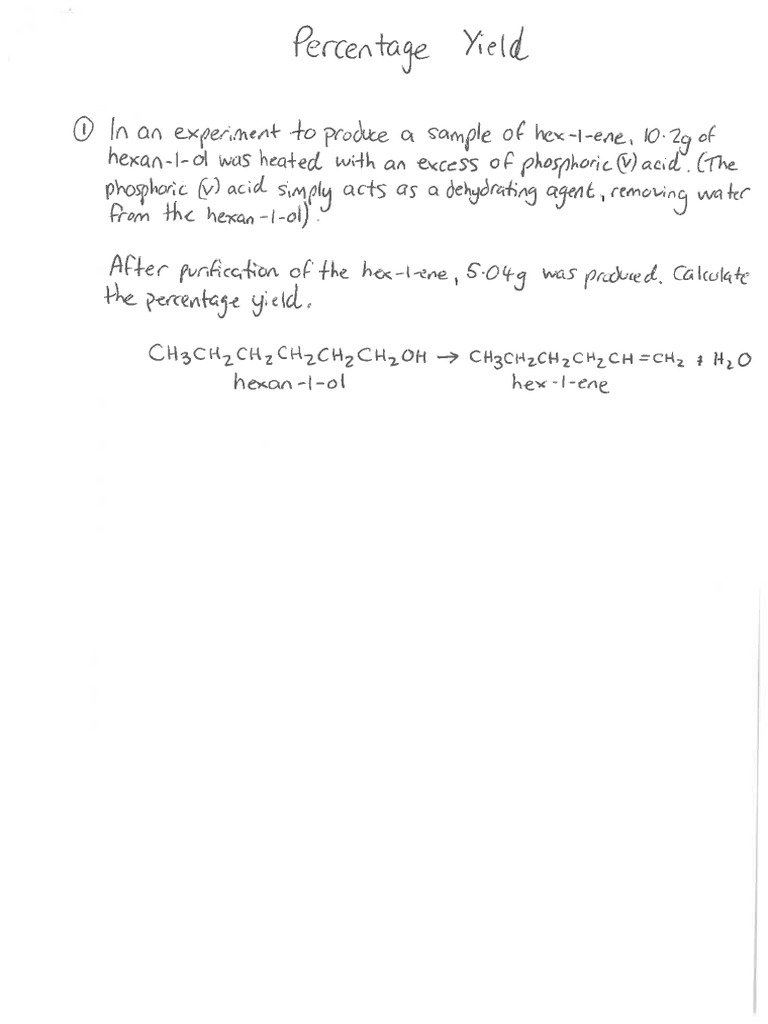 Percentage Yield
① In an experiment to produce a sample of hex-1-ene, 10.2g of
hexan-1-ol was heated with an excess of phosphoric (V) acid. (The
phosphoric (V) acid simply acts as a dehydrating agent, removing water
from the hexan-1-ol).
After purification of the hex-1-ene, 5.04g was produced. Calculate
the percentage yield.
CH₃CH₂CH₂CH₂CH₂CH₂OH → CH₃CH₂CH₂CH₂CH=CH₂ + H₂O
hexan-1-ol hex-1-ene